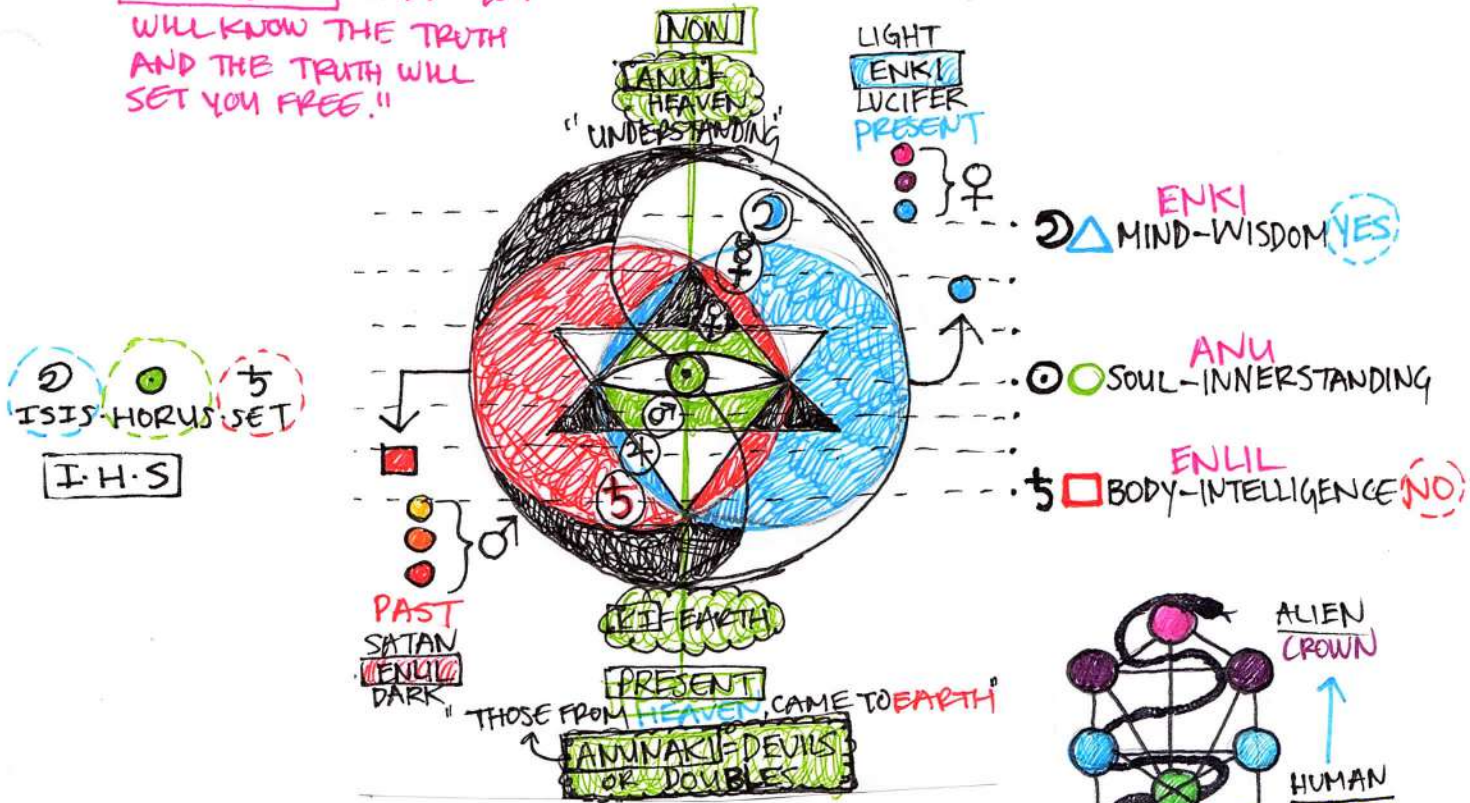 WILL KNOW THE TRUTH
AND THE TRUTH WILL
SET YOU FREE."
NOW
ANU=
HEAVEN
"UNDERSTANDING"
LIGHT
ENKI
LUCIFER
PRESENT
ENKI
MIND-WISDOM YES
ANU
SOUL-INNERSTANDING
ENLIL
BODY-INTELLIGENCE NO
ISIS-HORUS-SET
I.H.S
PAST
SATAN
ENLIL
DARK
KI=EARTH
PRESENT
"THOSE FROM HEAVEN, CAME TO EARTH"
ANUNAKI=DEVILS
OR DOUBLES
ALIEN
CROWN
HUMAN